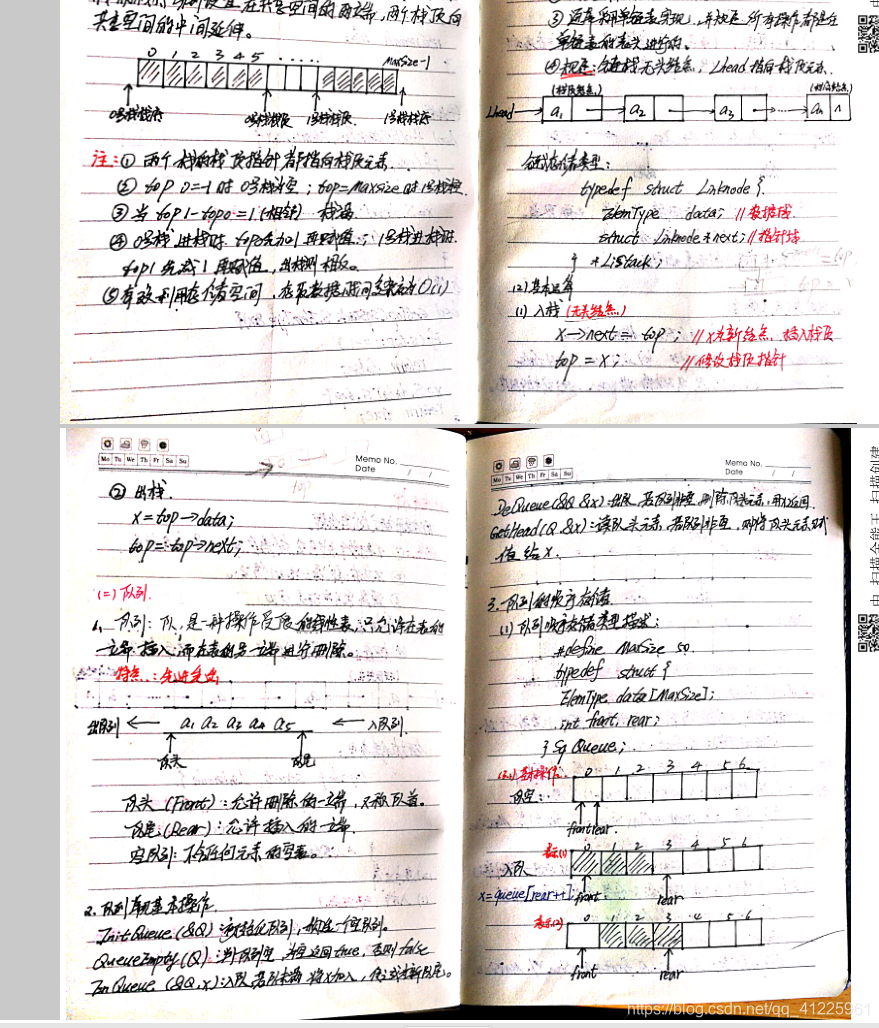 共享空间的中间延伸。
0 1 2 3 4 5 ...... MaxSize-1
0号栈栈底 0号栈栈顶 1号栈栈顶 1号栈栈底
注:① 两个栈的栈顶指针都指向栈顶元素
② top 0=-1时 0号栈为空;top=Maxsize时1号栈空
③ 当top1-top0=1(相邻) 栈满
④ 0号栈进栈时 top0先加1再赋值;1号栈进栈时
top1先减1再赋值,出栈则相反。
⑤ 有效利用存储空间,存取数据时间复杂度为O(1)
③ 通常采用单链表实现,并规定所有操作都是在
单链表的表头进行的。
④ 规定:链栈无头结点,Lhead指向栈顶元素
(栈顶结点)
Lhead a1 a2 a3 ... an ∧
存储类型:
typedef struct Linknode {
ElemType data; //数据域
struct Linknode *next; //指针域
} *LiStack;
(2) 基本运算
(1) 入栈 (无头结点)
x->next = top; //x为新结点,插入栈顶
top = x; //修改栈顶指针
Memo No.
Date / /
Mo Tu We Th Fr Sa Su
② 出栈.
x=top->data;
top=top->next;
(二) 队列.
1、队列:队,是一种操作受限的线性表,只允许在表的
一端插入,而在表的另一端进行删除。
特点:先进先出
出队列 a1 a2 a3 a4 a5 入队列
队头 队尾
队头(Front):允许删除的一端,又称队首。
队尾(Rear):允许插入的一端.
空队列:不含任何元素的空表。
2. 队列常见基本操作.
InitQueue(&Q):初始化队列,构造一个空队列。
QueueEmpty(Q):判队列空,为空返回true,否则false
EnQueue(&Q,x):入队,若队未满,将x加入,使之成为新队尾。
Memo No.
Date / /
Mo Tu We Th Fr Sa Su
DeQueue(&Q &x):出队,若队列非空,删除队头元素,用x返回.
GetHead(Q &x):读队头元素,若队列非空,则将队头元素赋
值给x.
3. 队列的顺序存储
(1) 队列顺序存储类型描述:
#define MaxSize 50
typedef struct {
ElemType data[MaxSize];
int front, rear;
} SqQueue;
(2) 基本操作. 0 1 2 3 4 5 6
队空:
front rear.
表示(1) 0 1 2 3 4 5 6
入队
x=queue[rear++] front rear
表示(2) 0 1 2 3 4 5 6
front rear
扫描全能王 扫描创建
https://blog.csdn.net/qq_41225961